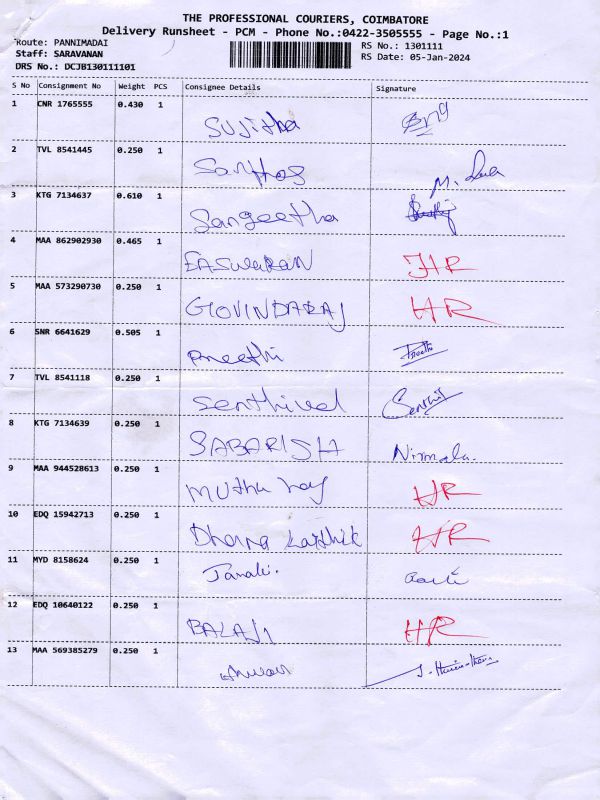 THE PROFESSIONAL COURIERS, COIMBATORE
Delivery Runsheet - PCM - Phone No.:0422-3505555 - Page No.:1
Route: PANNIMADAI
RS No.: 1301111
Staff: SARAVANAN
RS Date: 05-Jan-2024
DRS No.: DCJB130111101
S No Consignment No Weight PCS Consignee Details Signature
1 CNR 1765555 0.430 1 Sujitha
2 TVL 8541445 0.250 1 Santhos M.
3 KTG 7134637 0.610 1 Sangeetha
4 MAA 862902930 0.465 1 EASWARAN HR
5 MAA 573290730 0.250 1 GOVINDARAJ HR
6 SNR 6641629 0.505 1 Preethi Preethi
7 TVL 8541118 0.250 1 Senthivel
8 KTG 7134639 0.250 1 SABARISH Nirmala.
9 MAA 944528613 0.250 1 Muthu raj HR
10 EDQ 15942713 0.250 1 Dharna karthik HR
11 MYD 8158624 0.250 1 Janaki.
12 EDQ 10640122 0.250 1 BALAJI HR
13 MAA 569385279 0.250 1